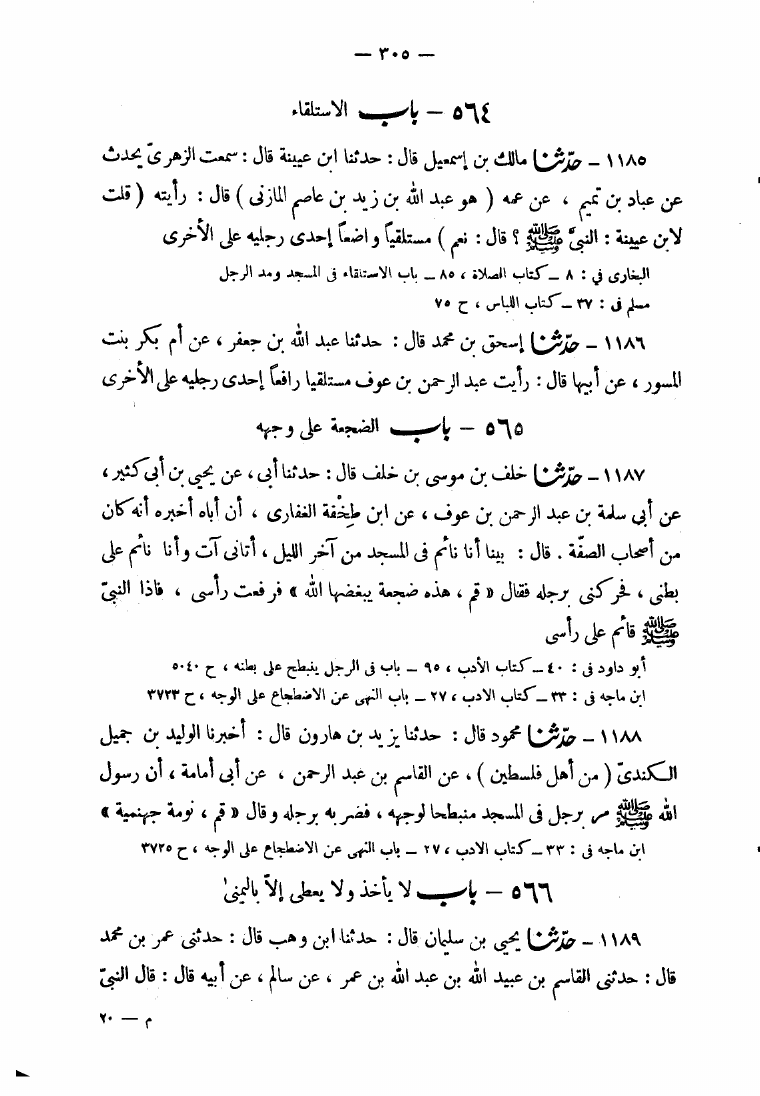 — ٣٠٥ —
٥٦٤ – باب الاستلقاء
١١٨٥ – حدّثنا مالك بن إسمعيل قال : حدثنا ابن عيينة قال : سمعت الزهرىّ يحدث
عن عباد بن تميم ، عن عمه ( هو عبد الله بن زيد بن عاصم المازنى ) قال : رأيته ( قلت
لابن عيينة : النبىَّ ﷺ ؟ قال : نعم ) مستلقياً واضعاً إحدى رجليه على الأخرى
البخارى فى : ٨ – كتاب الصلاة ، ٨٥ – باب الاستلقاء فى المسجد ومد الرجل
مسلم فى : ٣٧ – كتاب اللباس ، ح ٧٥
١١٨٦ – حدّثنا إسحق بن محمد قال : حدثنا عبد الله بن جعفر ، عن أم بكر بنت
المسور ، عن أبيها قال : رأيت عبد الرحمن بن عوف مستلقيا رافعاً إحدى رجليه على الأخرى
٥٦٥ – باب الضجعة على وجهه
١١٨٧ – حدّثنا خلف بن موسى بن خلف قال : حدثنا أبى ، عن يحيى بن أبى كثير ،
عن أبى سلمة بن عبد الرحمن بن عوف ، عن ابن طِخْفة الغفارى ، أن أباه أخبره أنه كان
من أصحاب الصفّة . قال : بينا أنا نائم فى المسجد من آخر الليل ، أتانى آت وأنا نائم على
بطنى ، فحركنى برجله فقال « قم ، هذه ضجعة يبغضها الله » فرفعت رأسى ، فاذا النبىّ
ﷺ قائم على رأسى
أبو داود فى : ٤٠ – كتاب الأدب ، ٩٥ – باب فى الرجل ينبطح على بطنه ، ح ٥٠٤٠
ابن ماجه فى : ٣٣ – كتاب الادب ، ٢٧ – باب النهى عن الاضطجاع على الوجه ، ح ٣٧٢٣
١١٨٨ – حدّثنا محمود قال : حدثنا يزيد بن هارون قال : أخبرنا الوليد بن جميل
الكندىّ ( من أهل فلسطين ) ، عن القاسم بن عبد الرحمن ، عن أبى أمامة ، أن رسول
الله ﷺ مر برجل فى المسجد منبطحا لوجهه ، فضربه برجله وقال « قم ، نومة جهنمية »
ابن ماجه فى : ٣٣ – كتاب الادب ، ٢٧ – باب النهى عن الاضطجاع على الوجه ، ح ٣٧٢٥
٥٦٦ – باب لا يأخذ ولا يعطى إلاّ باليمنى
١١٨٩ – حدّثنا يحيى بن سليمان قال : حدثنا ابن وهب قال : حدثنى عمر بن محمد
قال : حدثنى القاسم بن عبيد الله بن عبد الله بن عمر ، عن سالم ، عن أبيه قال : قال النبىّ
م — ٢٠